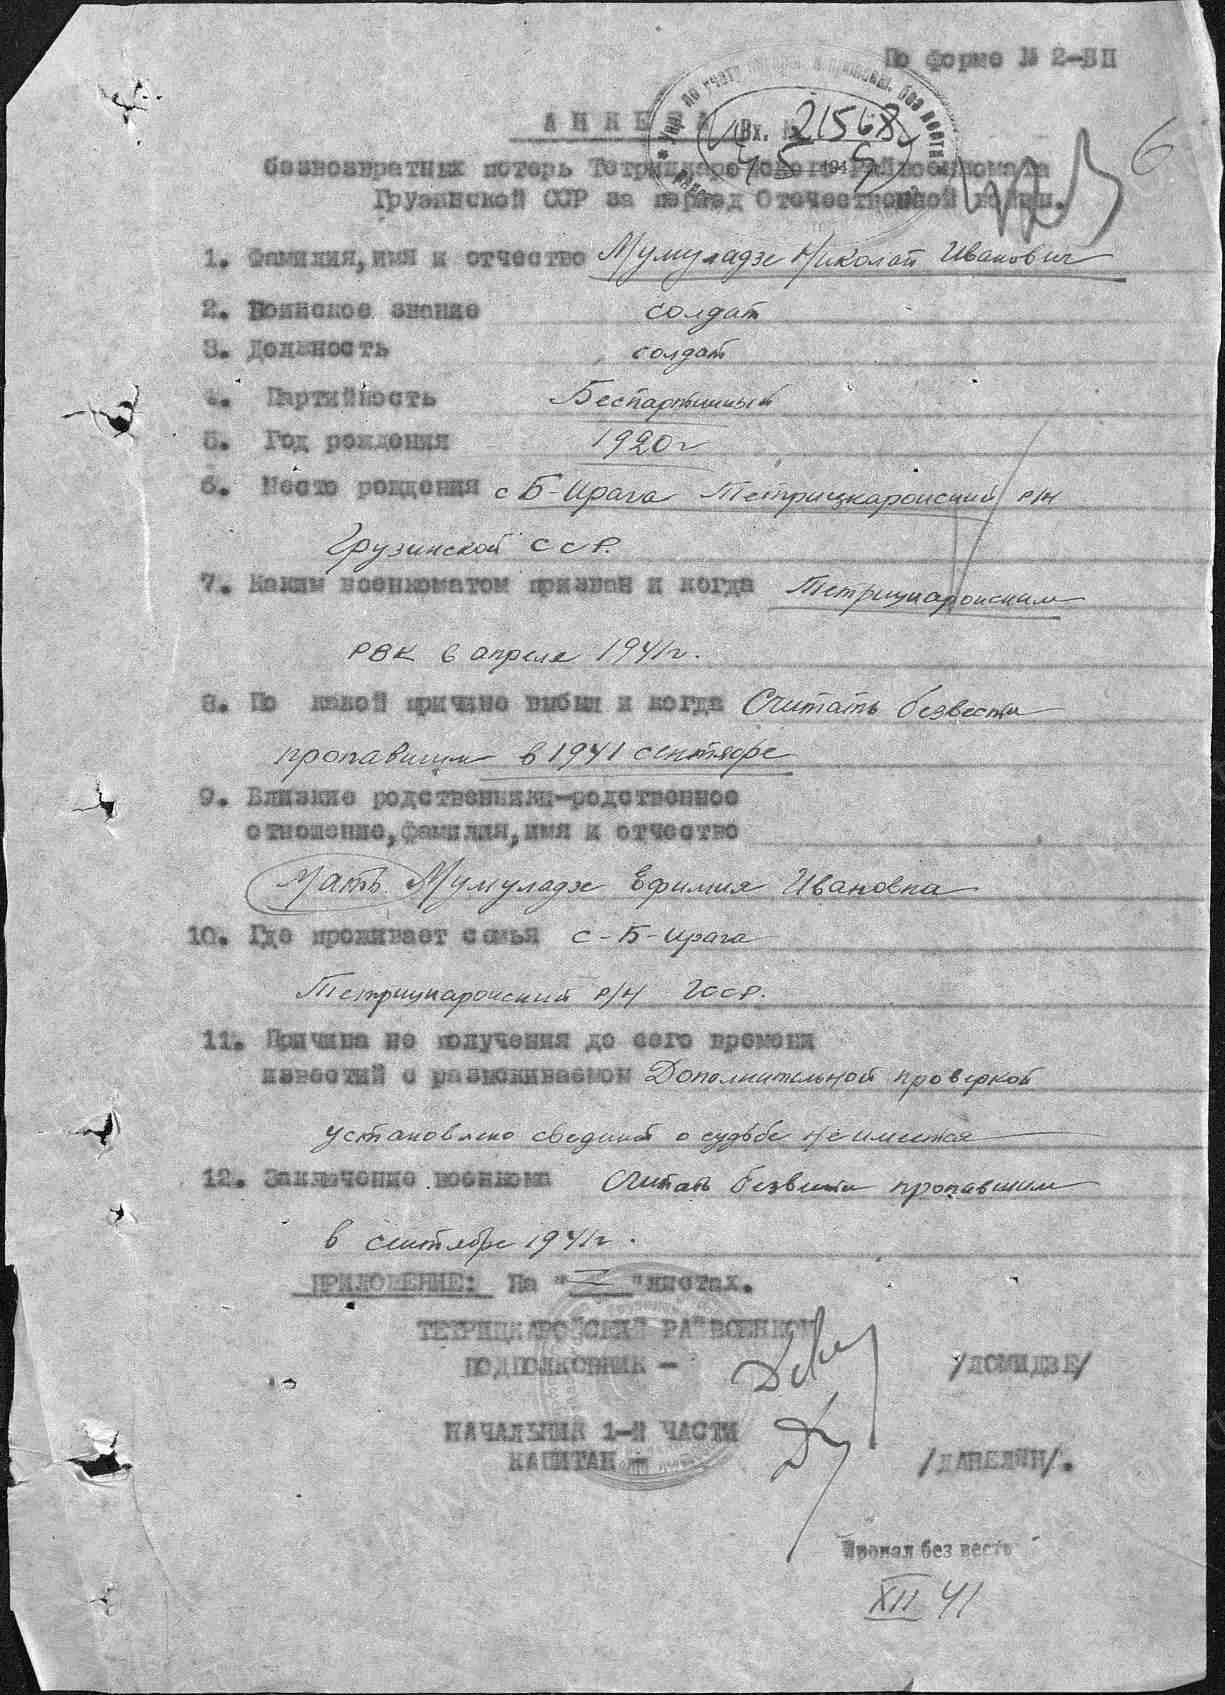 По форме № 2-БП
6
АНКЕТА
Вх. № 21568
194
безвозвратных потерь Тетрицкаройского Райвоенкомата
Грузинской ССР за период Отечественной войны.
1. Фамилия, имя и отчество Мумуладзе Николай Иванович
2. Воинское звание солдат
3. Должность солдат
4. Партийность Беспартийный
5. Год рождения 1920г
6. Место рождения с Б-Ирага Тетрицкаройский р/н
Грузинской ССР.
7. Каким военкоматом призван и когда Тетрицкаройским
РВК в апреле 1941г.
8. По какой причине выбыл и когда Считать безвести
пропавшим в 1941 сентябре
9. Близкие родственники-родственное
отношение, фамилия, имя и отчество
Мать Мумуладзе Ефимия Ивановна
10. Где проживает семья с-Б-Ирага
Тетрицкаройский р/н ГССР.
11. Причина не получения до сего времени
известий о разыскиваемом Дополнительной проверкой
установлено сведений о судьбе не имеется
12. Заключение военкома Считать безвести пропавшим
в сентябре 1941г.
ПРИЛОЖЕНИЕ: На "I" листах.
ТЕТРИЦКАРОЙСКИЙ РАЙВОЕНКОМ
ПОДПОЛКОВНИК - /ЛОМИДЗЕ/
НАЧАЛЬНИК 1-Й ЧАСТИ
КАПИТАН - /ДАНЕЛЯН/.
Пропал без вести
XII 41